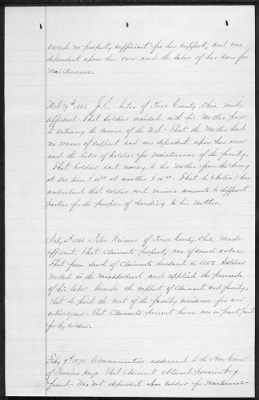 owned no property sufficient for her support, and was
dependent upon her own and the labor of her sons for
maintenance.
Feb 7th 1882 John Antin of Knox County, Ohio, made
affidavit. That Soldier resided with his Mother prior
to entering the service of the U.S. That the Mother had
no means of support and was dependent upon her own
and the labor of Soldier for maintenance of the family.
That Soldier sent money to his Mother from the Army
at one time $ at another $ That he (Antin) has
understood that Soldier sent various amounts to different
parties for the purpose of handing to his Mother.
July 1882 Peter of Knox County, Ohio, made
affidavit. That Claimants property was of small value.
That from death of Claimants husband in 1852 Soldier
worked in the neighborhood and applied the proceeds
of his labor towards the support of Claimant and family,
that he paid the rent of the family residence for
That Claimants present home was in part paid
for by Soldier.
Communication addressed to the Hon Com
of Pensions says That Claimant obtained pension by
fraud. Was not dependent upon Soldier for maintenance